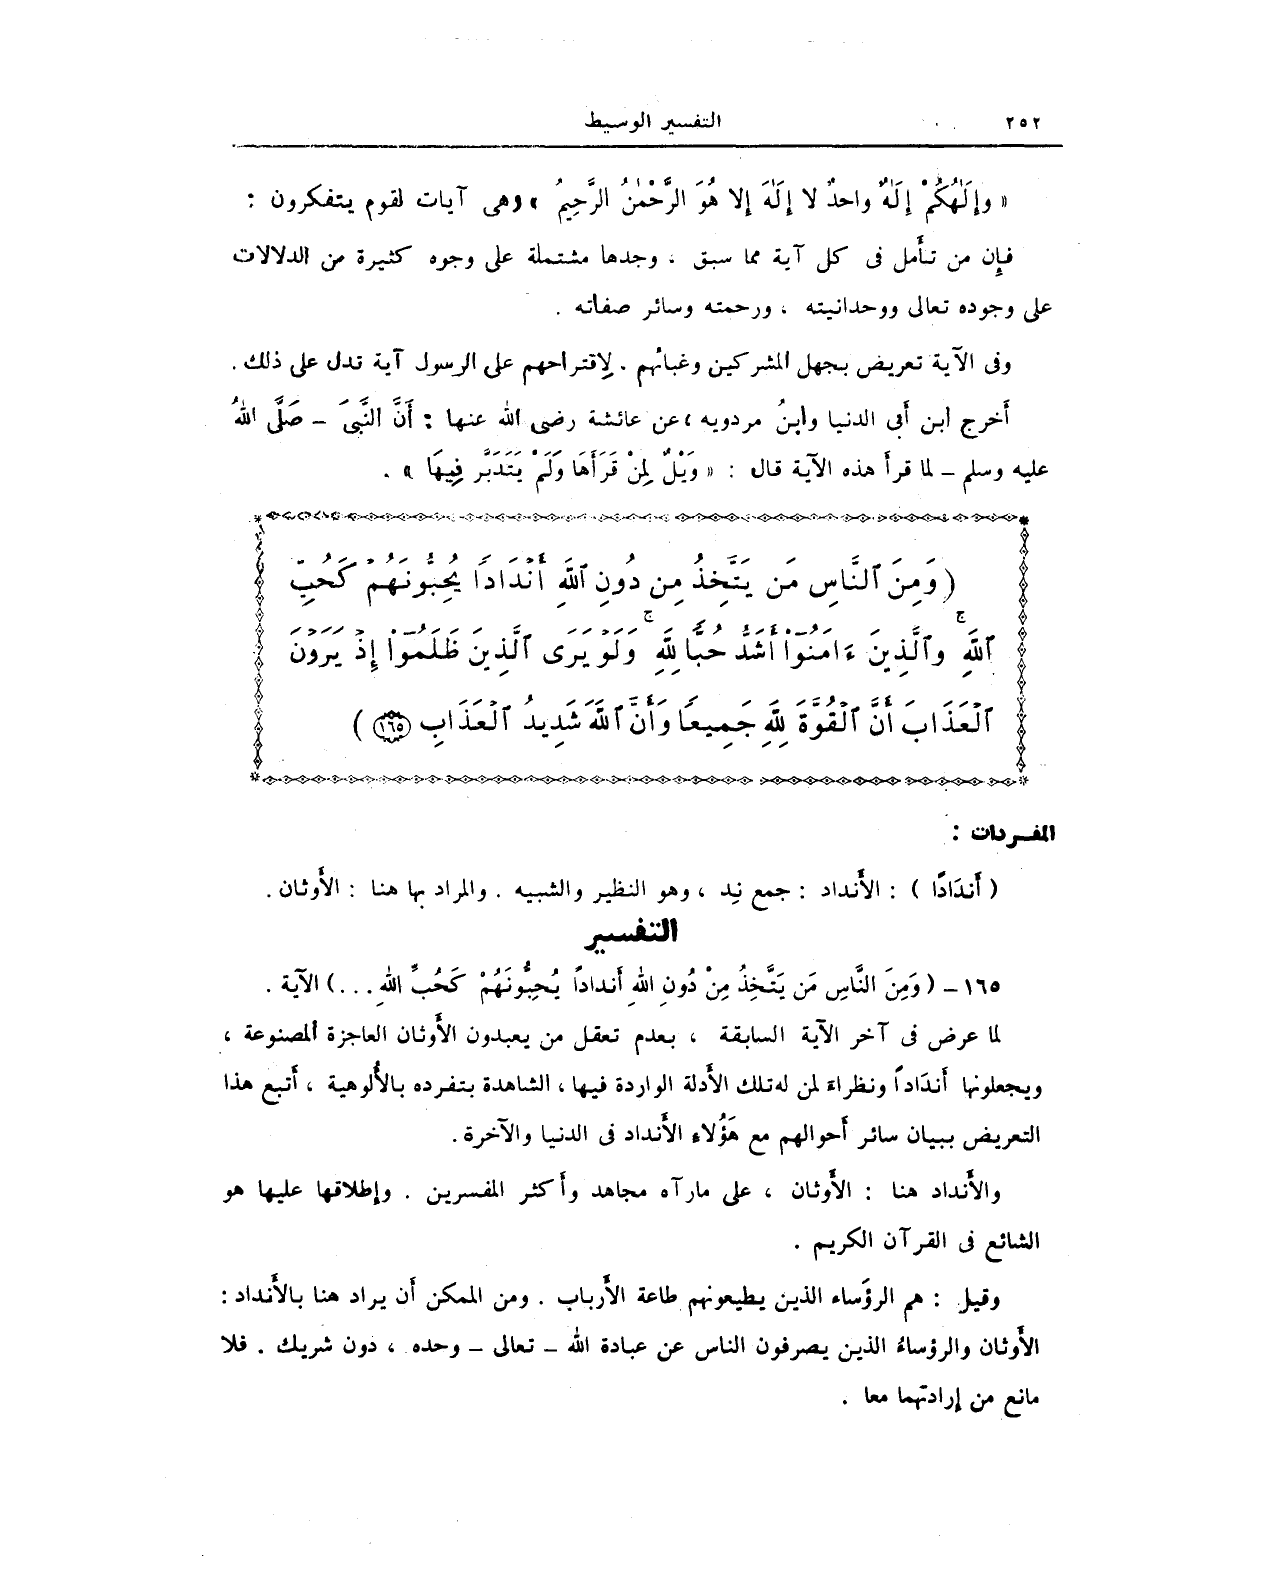 ٢٥٢
التفسير الوسيط
« وإِلَٰهُكُمْ إِلَٰهٌ واحدٌ لا إِلَٰهَ إلا هُوَ الرَّحْمَٰنُ الرَّحِيمُ » وهى آيات لقوم يتفكرون :
فإِن من تأَمل فى كل آية مما سبق ، وجدها مشتملة على وجوه كثيرة من الدلالات
على وجوده تعالى ووحدانيته ، ورحمته وسائر صفاته .
وفى الآية تعريض بجهل المشركين وغبائهم . لاِقتراحهم على الرسول آية تدل على ذلك .
أَخرج ابن أَبى الدنيا وابنُ مردويه ، عن عائشة رضى الله عنها : أَنَّ النَّبِىَّ – صَلَّى اللهُ
عليه وسلم – لما قرأَ هذه الآية قال : « وَيْلٌ لِمنْ قَرَأَهَا وَلَمْ يَتَدَبَّر فِيهَا » .
( وَمِنَ ٱلنَّاسِ مَن يَتَّخِذُ مِن دُونِ ٱللَّهِ أَندَادًا يُحِبُّونَهُمْ كَحُبِّ
ٱللَّهِ ۖ وَٱلَّذِينَ ءَامَنُوٓا۟ أَشَدُّ حُبًّا لِلَّهِ ۗ وَلَوْ يَرَى ٱلَّذِينَ ظَلَمُوٓا۟ إِذْ يَرَوْنَ
ٱلْعَذَابَ أَنَّ ٱلْقُوَّةَ لِلَّهِ جَمِيعًا وَأَنَّ ٱللَّهَ شَدِيدُ ٱلْعَذَابِ ١٦٥ )
المفـردات :
( أَندَادًا ) : الأَنداد : جمع نِد ، وهو النظير والشبيه . والمراد بها هنا : الأَوثان .
التفسير
١٦٥ – ( وَمِنَ النَّاسِ مَن يَتَّخِذُ مِنْ دُونِ اللهِ أَنداداً يُحِبُّونَهُمْ كَحُبِّ اللهِ ... ) الآية .
لما عرض فى آخر الآية السابقة ، بعدم تعقل من يعبدون الأَوثان العاجزة المصنوعة ،
ويجعلونها أَندَاداً ونظراءَ لمن له تلك الأَدلة الواردة فيها ، الشاهدة بتفرده بالأُلوهية ، أَتبع هذا
التعريض ببيان سائر أَحوالهم مع هَؤُلاءِ الأَنداد فى الدنيا والآخرة .
والأَنداد هنا : الأَوثان ، على مارآه مجاهد وأَكثر المفسرين . وإِطلاقها عليها هو
الشائع فى القرآن الكريم .
وقيل : هم الرؤَساء الذين يطيعونهم طاعة الأَرباب . ومن الممكن أَن يراد هنا بالأَنداد :
الأَوثان والرؤساءُ الذين يصرفون الناس عن عبادة الله – تعالى – وحده ، دون شريك . فلا
مانع من إِرادتهما معا .